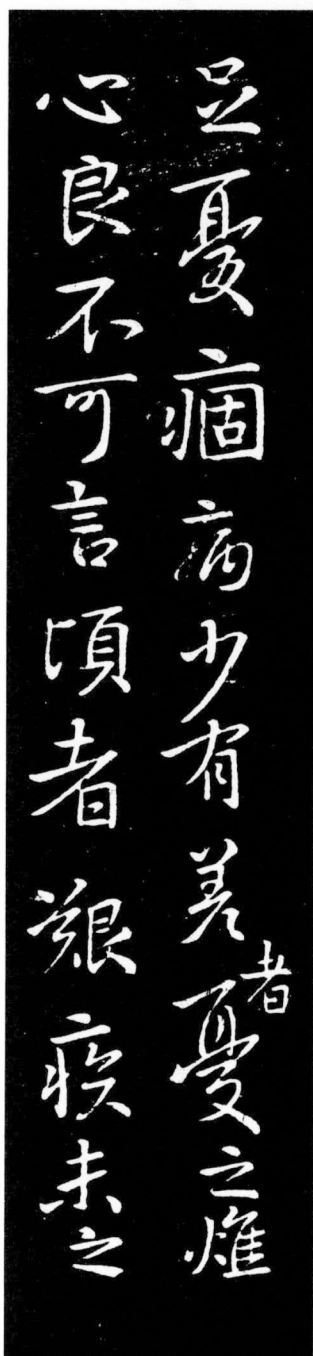 足憂痼病少有差者憂之燋
心良不可言頃者艱疾未之